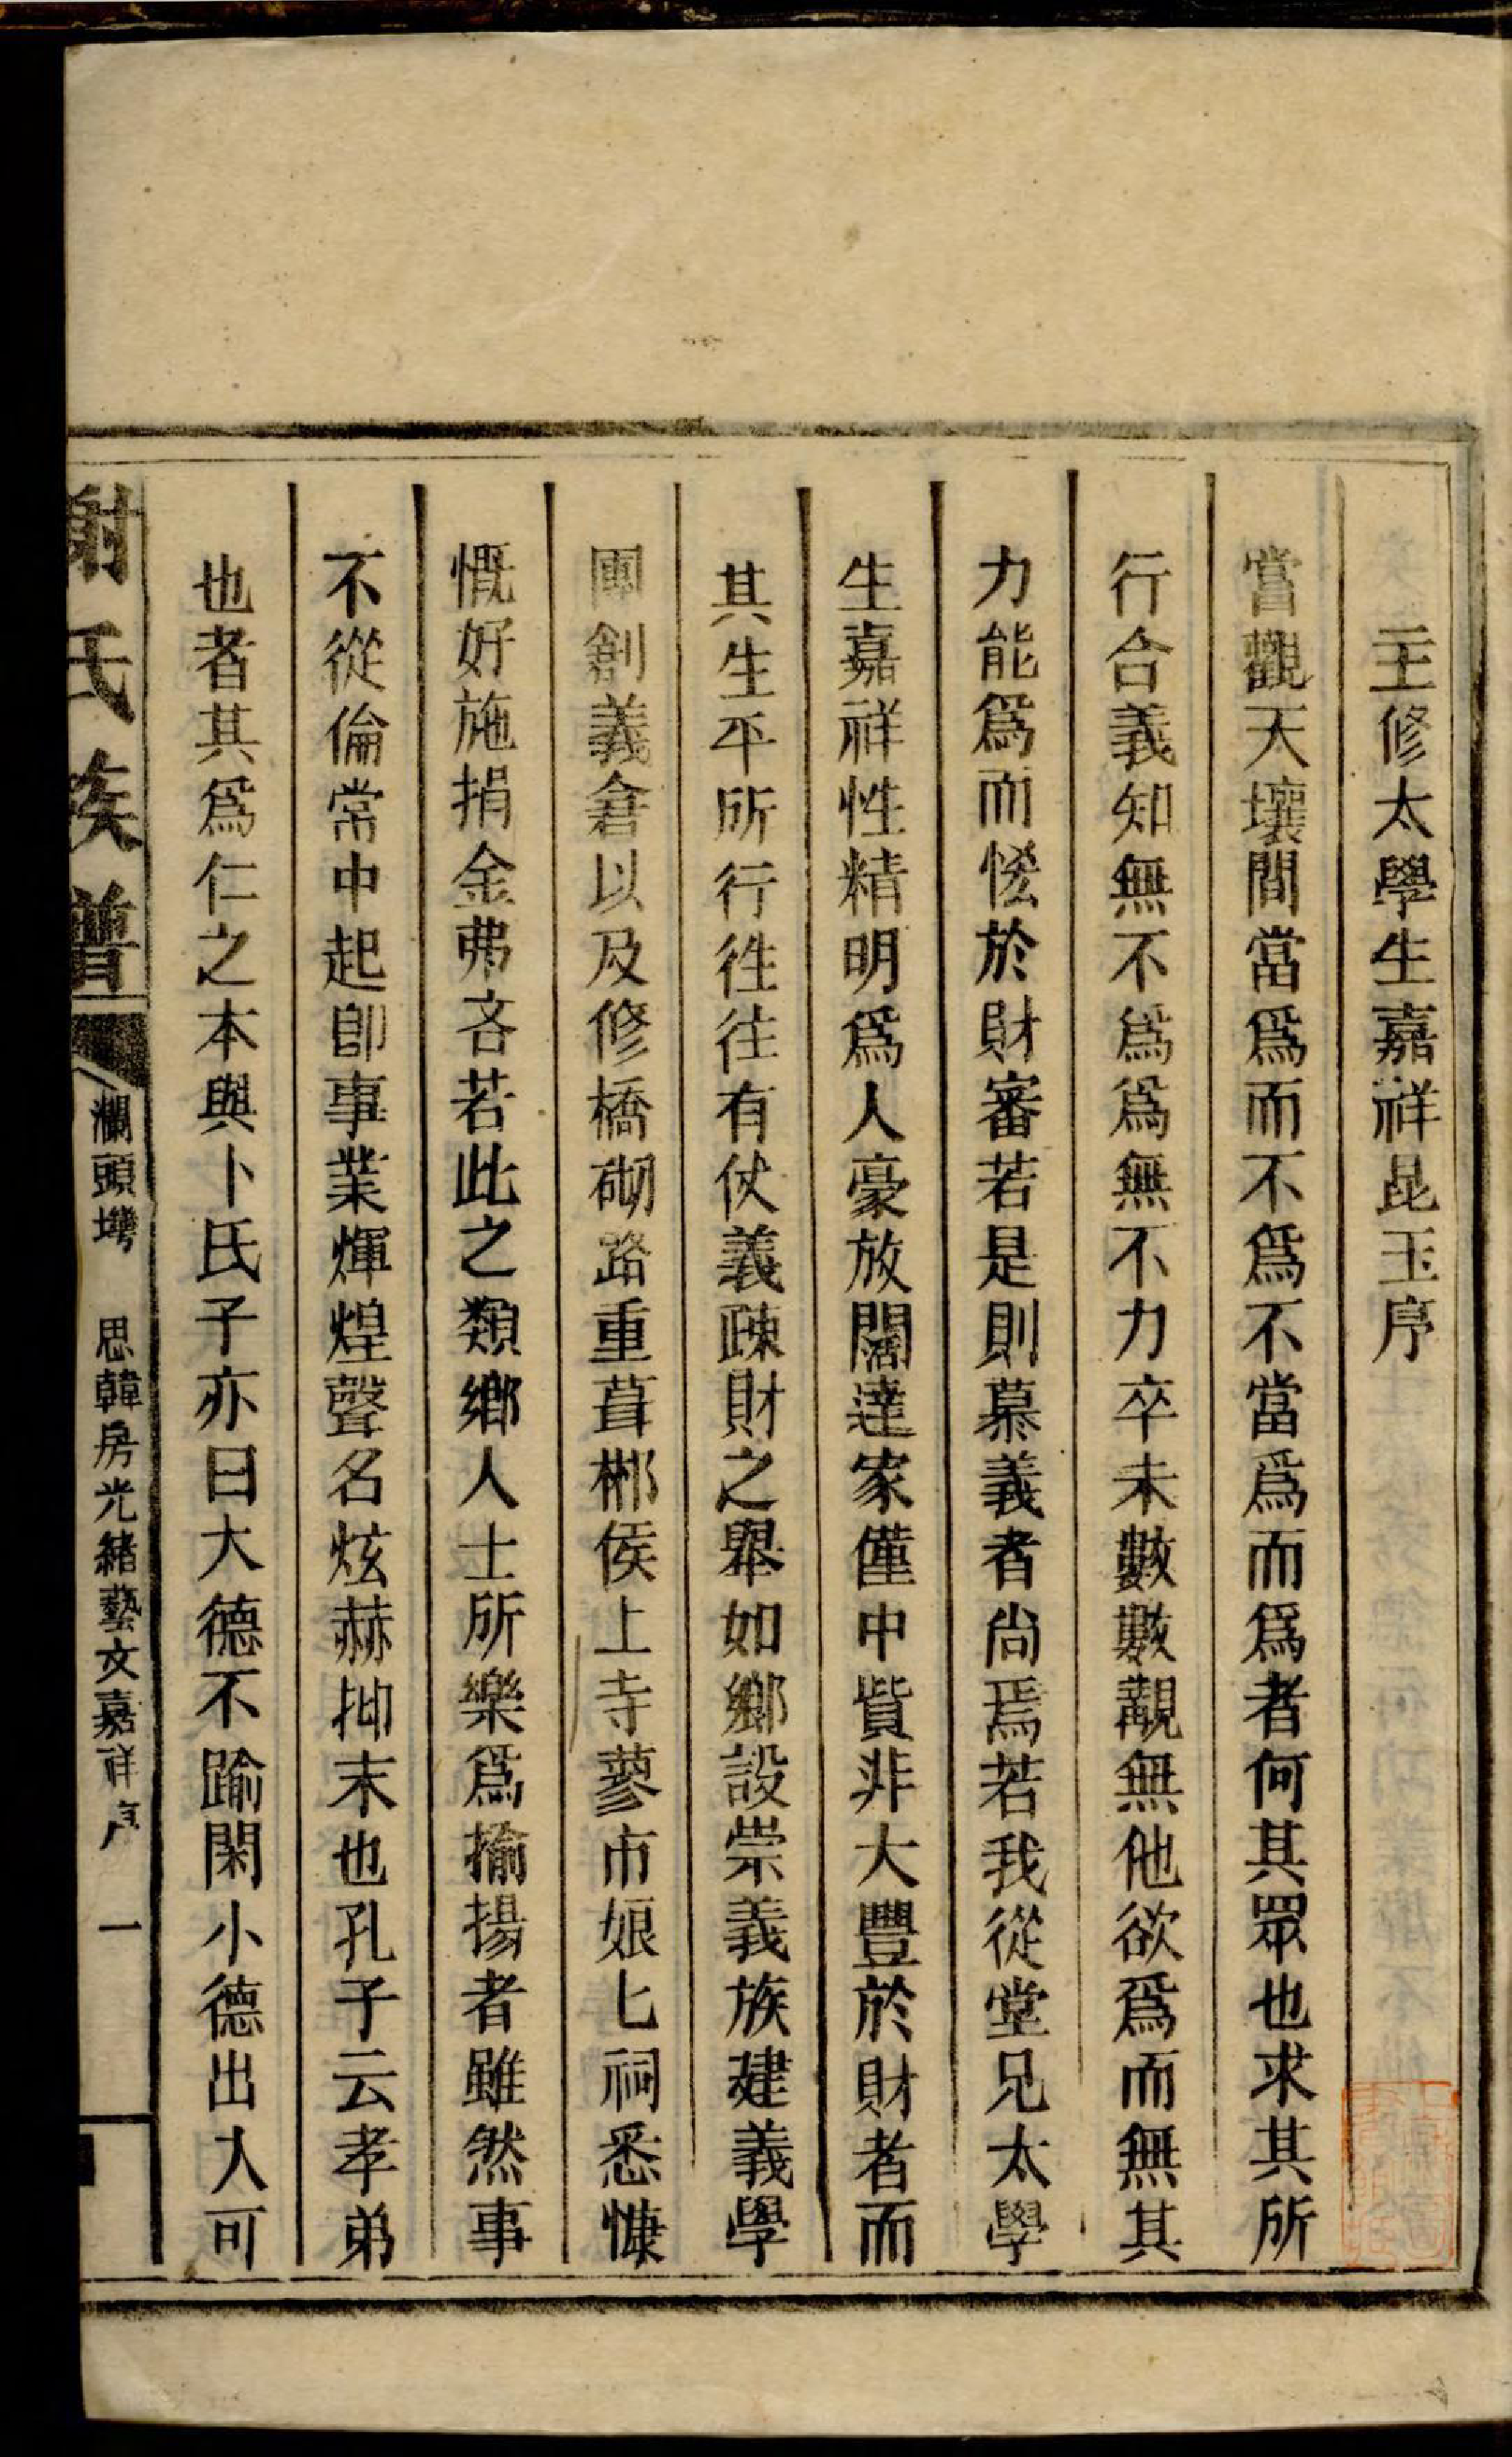 主修太學生嘉祥昆玉序
嘗觀天壤間當爲而不爲不當爲而爲者何其眾也求其所
行合義知無不爲爲無不力卒未數數覯無他欲爲而無其
力能爲而恡於財審若是則慕義者尙焉若我從堂兄太學
生嘉祥性精明爲人豪放闊達家僅中貲非大豐於財者而
其生平所行徃往有仗義疎財之舉如鄉設崇義族建義學
團創義倉以及修橋砌路重葺郴侯上寺蓼市娘匕祠悉慷
慨好施捐金弗吝若此之類鄉人士所樂爲揄揚者雖然事
不從倫常中起卽事業煇煌聲名炫赫抑末也孔子云孝弟
也者其爲仁之本與卜氏子亦曰大德不踰閑小德出入可
謝氏族譜
瀾頭塆 思韓房光緒藝文嘉祥序 一